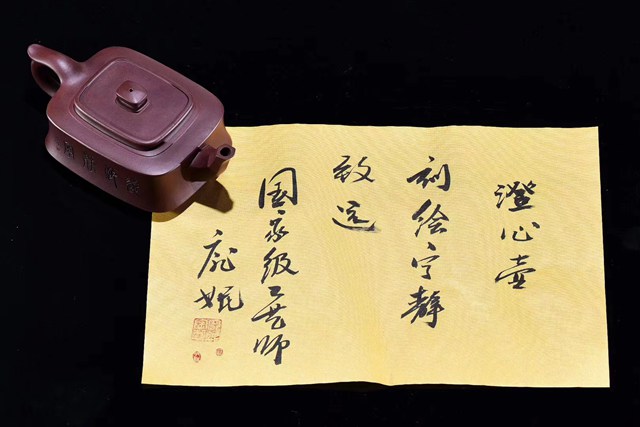 澄心壶
刻绘宁静
致远
国家级工艺师
庞妮